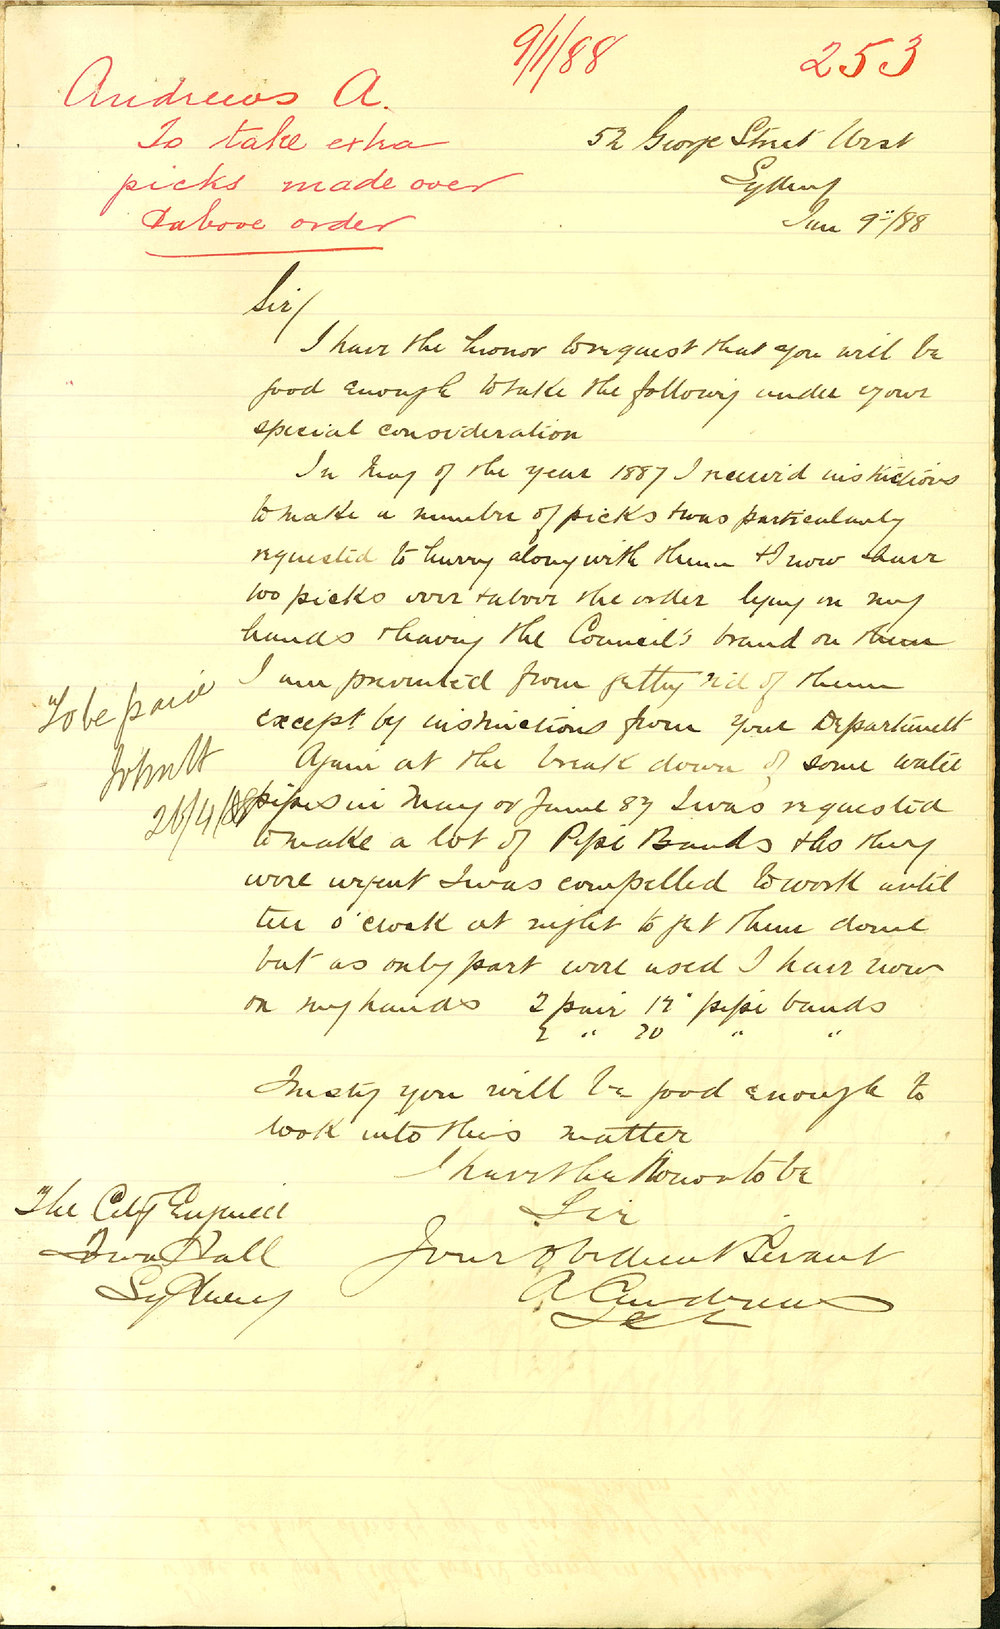 9/1/88
253
Andrews A.
To take extra
picks made over
& above order
52 George Street West
Sydney
Jan 9"/88
Sir/
I have the honor to request that you will be
good enough to take the following under your
special consideration
In May of the year 1887 I receivd instructions
to make a number of picks & was particularly
requested to hurry along with them & I now have
100 picks over & above the order lying on my
hands & having the Council's brand on them
I am prevented from getting rid of them
except by instructions from your Department
Again at the break down of some water
pipes in May or June 87 I was requested
to make a lot of Pipe Bands & as they
were urgent I was compelled to work until
ten o'clock at night to get them done
but as only part were used I have now
on my hands 2 pair 12" pipe bands
2 " 20 " "
Trusting you will be good enough to
look into this matter
I have the Honor to be
Sir
Your Obedient Servant
A Andrews
To be paid
26/4/88
The City Engineer
Town Hall
Sydney